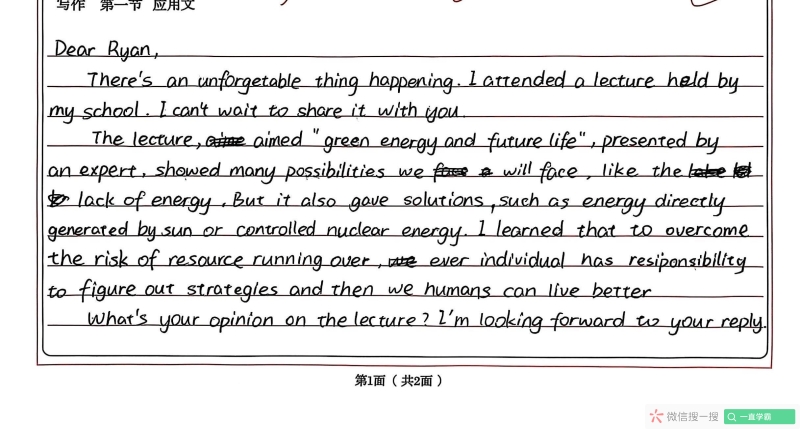 写作 第一节 应用文
Dear Ryan,
There's an unforgetable thing happening. I attended a lecture held by
my school. I can't wait to share it with you.
The lecture, aimed "green energy and future life", presented by
an expert, showed many possibilities we will face, like the
lack of energy. But it also gave solutions, such as energy directly
generated by sun or controlled nuclear energy. I learned that to overcome
the risk of resource running over, ever individual has resiponsibility
to figure out strategies and then we humans can live better
What's your opinion on the lecture? I'm looking forward to your reply.
第1面（共2面）
微信搜一搜 一直学霸